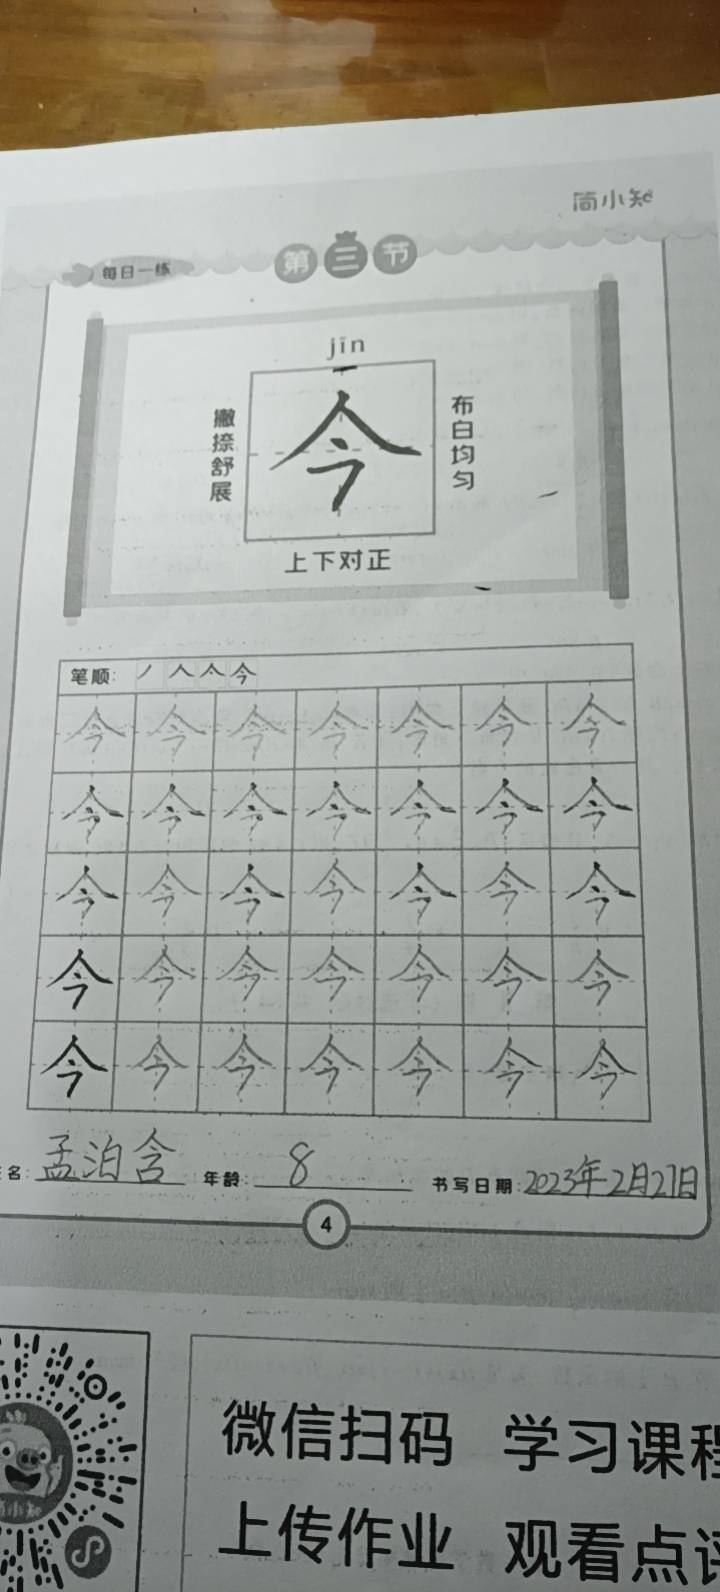 简小知
每日一练
第三节
jīn
今
撇捺舒展
布白均匀
上下对正
笔顺: 丿 人 亼 今
今 今 今 今 今 今 今
今 今 今 今 今 今 今
今 今 今 今 今 今 今
今 今 今 今 今 今 今
今 今 今 今 今 今 今
名: 孟泊含 年龄: 8 书写日期: 2023年2月27日
4
微信扫码 学习课程
上传作业 观看点